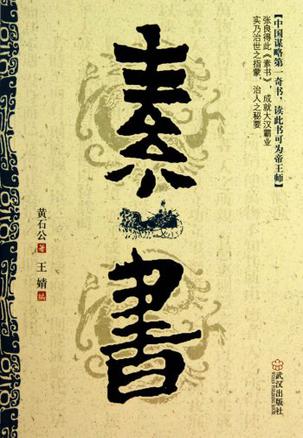 【中国谋略第一奇书,读此书可为帝王师】
张良得此《素书》,成就大汉霸业
实乃治世之指蒙,治人之秘要
素书
黄石公著 王婧编
武汉出版社